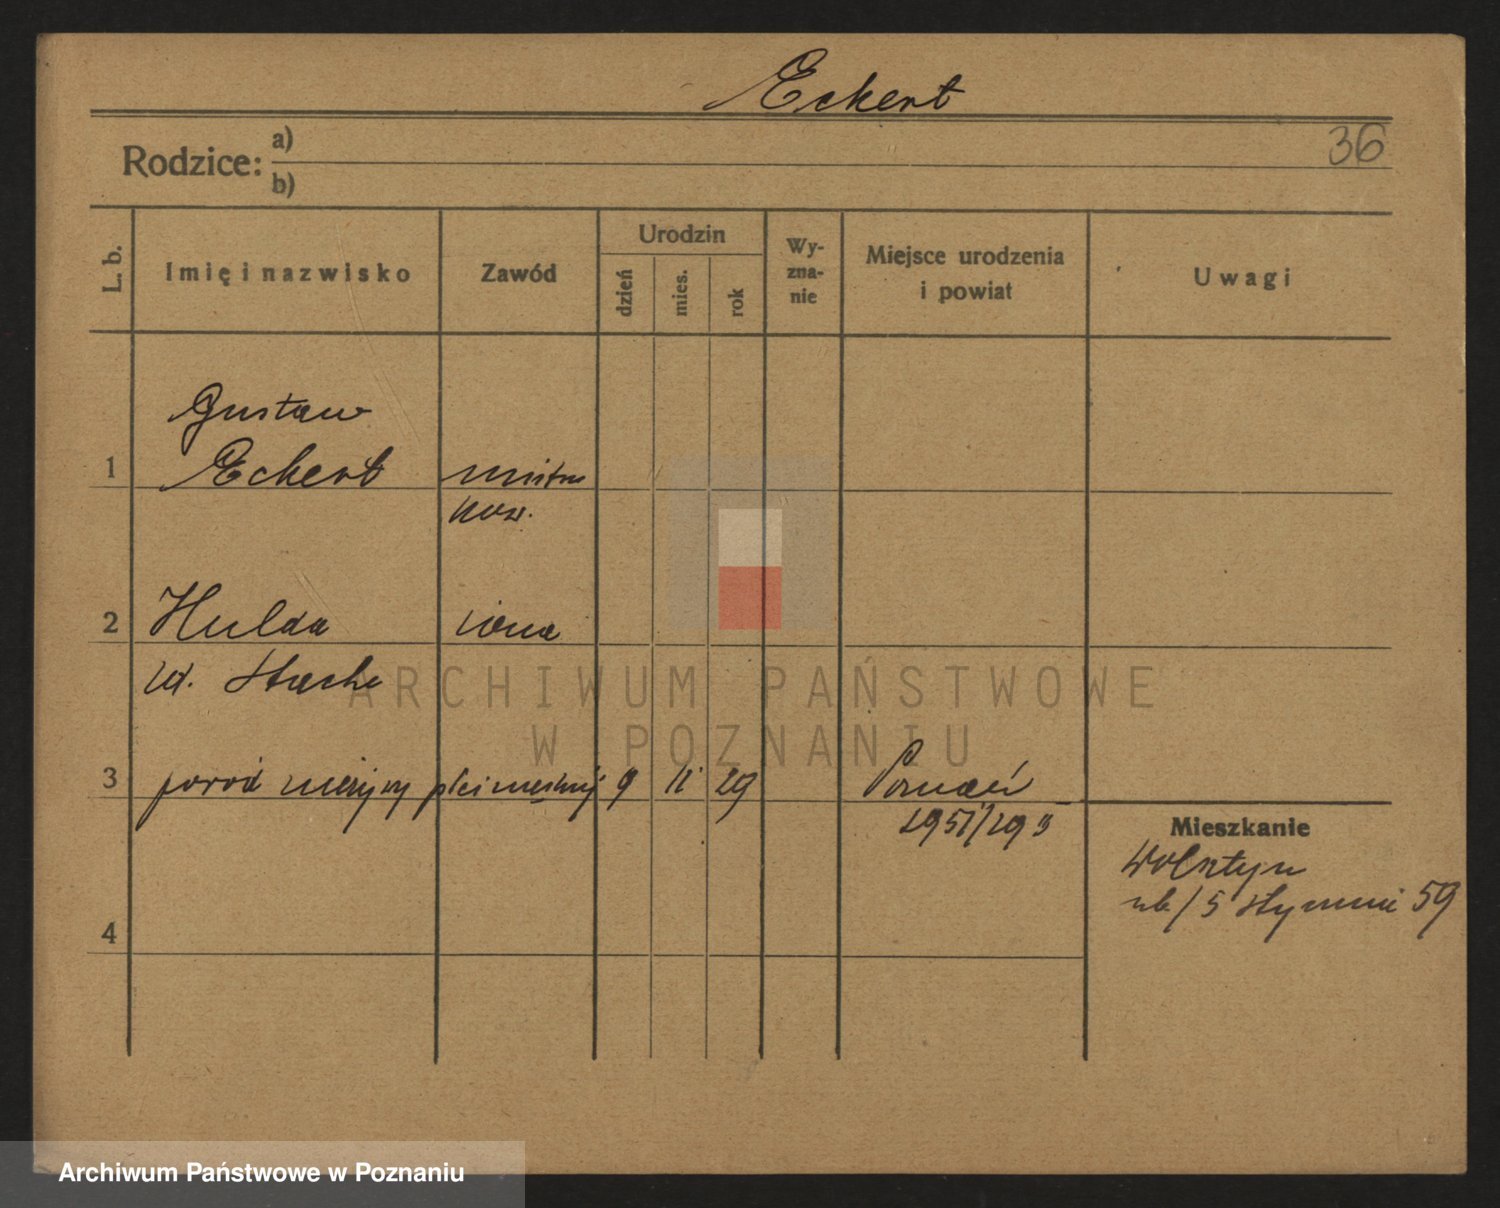 Eckert
36
Rodzice: a)
b)
L. b.
Imię i nazwisko
Zawód
Urodzin
dzień
mies.
rok
Wy-
zna-
nie
Miejsce urodzenia
i powiat
Uwagi
Gustaw
1 Eckert mistrz
kow.
2 Hulda żona
ur. Stache
3 poród nieżywy płci męskiej 9 11 29 Poznań
1951/29
Mieszkanie
Wolsztyn
5 Stycznia 59
4
ARCHIWUM PAŃSTWOWE
W POZNANIU
Archiwum Państwowe w Poznaniu